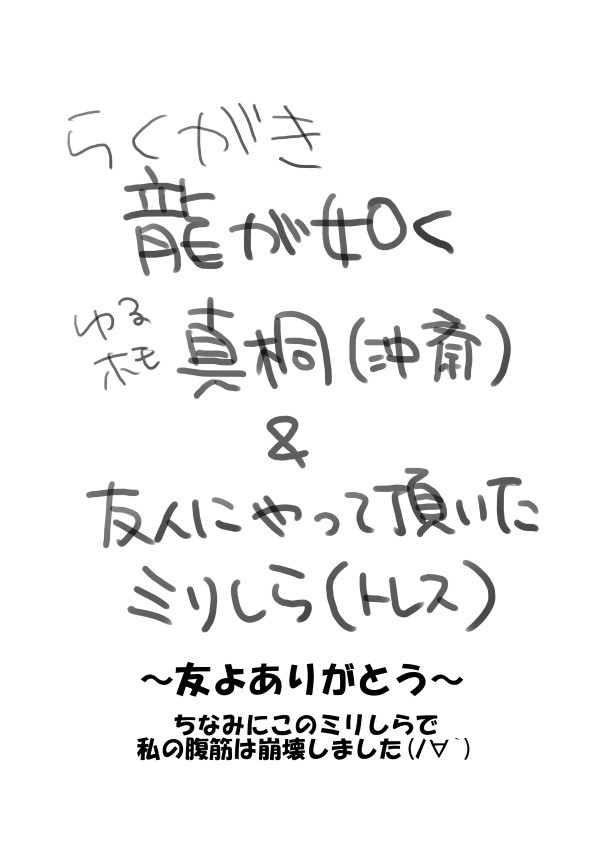 らくがき
龍が如く
ゆるホモ 真桐(沖斎)
&
友人にやって頂いた
ミリしら(トレス)
～友よありがとう～
ちなみにこのミリしらで
私の腹筋は崩壊しました(/∀`)